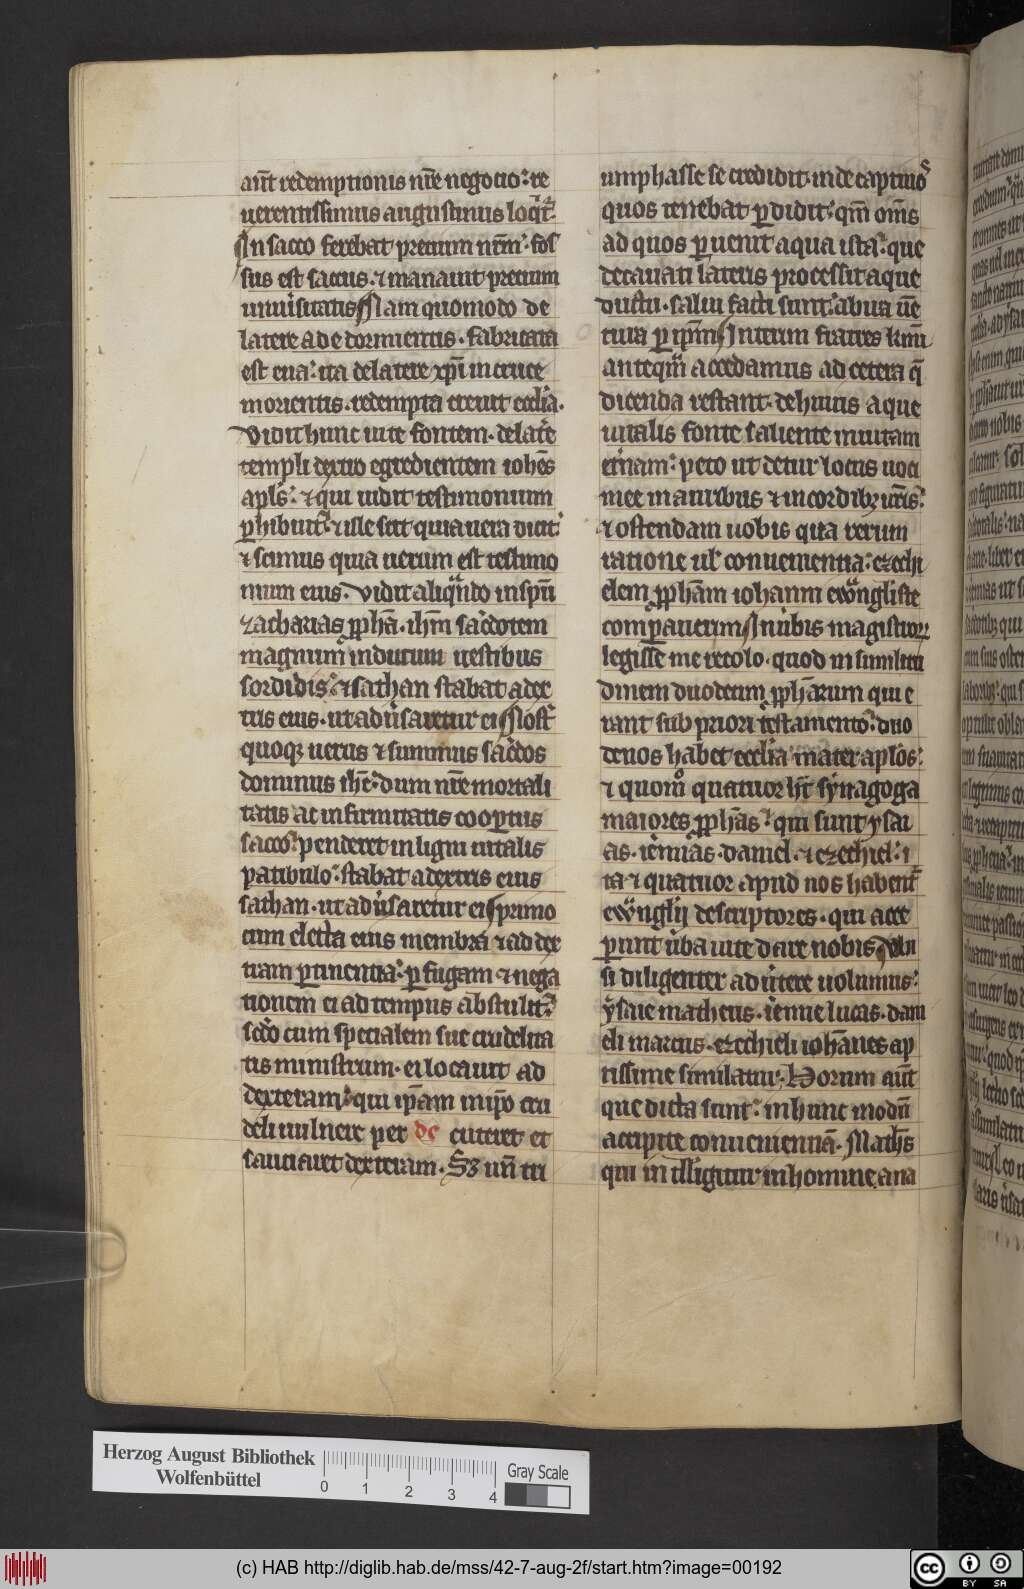 aut̄ redemptionis nr̄e negocio: re
uerentissimus augustinus loqt̄.
In sacco ferebat precium nr̄m. fos
sus est saccus. ⁊ manauit precium
uniuͥsitatis Nam quomodo de
latere ade dormientis. fabricata
est eua: ita de latere xp̄i in cruce
morientis. redempta exiuit eccl̄ia.
Vidit hunc uite fontem. de lat̄e
templi dextro egredientem ioh̄es
apl̄s: ⁊ qui uidit testimonium
ꝑhibuit: ⁊ ille scit quia uera dicit:
⁊ scimus quia uerum est testimo
nium eius. Vidit aliqͣndo in spū
zacharias ꝓph̄a. ih̄m sac̄dotem
magnum indutum uestibus
sordidis: ⁊ sathan stabat a dex
tris eius. ut aduͥsaretur ei Nost̄
quoqꝫ uerus ⁊ summus sac̄dos
dominus ih̄c: dum nr̄e mortali
tatis ac infirmitatis cooꝑtus
sacco: penderet in ligni uitalis
patibulo: stabat a dextris eius
sathan. ut aduͥsaretur ei primo
cum electa eius membra ⁊ ad dex
tram ꝑtinentia: ꝑ fugam ⁊ nega
tionem ei ad tempus abstulit:
sec̄do cum specialem sue crudelita
tis ministrum. ei locauit ad
dexteram: qui ip̄am im̄pio cru
deli uulnere per de cuteret et
sauciaret dexteram. Sꝫ un̄ tri
umphasse se credidit. inde captiuos
quos tenebat ꝑdidit: qm̄ om̄s
ad quos ꝑuenit aqua ista: que
de cauati lateris processit aque
ductu. salui facti sunt: a bua uē
tura ꝑ ip̄m Interim fratres kr̄mi
anteqͣm accedamus ad cetera q̄
dicenda restant. de huius aque
uitalis fonte saliente in uitam
et̄nam: peto ut detur locus uoci
mee in auribus ⁊ in cordibꝫ ur̄is:
⁊ ostendam uobis qua rerum
ratione ul̄ conuenientia: ezechi
elem ꝓph̄am iohanni ewͣngliste
comꝑauerim In uͥbis magistrorꝫ
legisse me recolo. quod in similitu
dinem duodecim ꝓph̄arum qui e
rant sub priori testamento: duo
denos habet eccl̄ia mater apl̄os:
⁊ quom̊ quatuor h̄t synagoga
maiores ꝓph̄as: qui sunt ysai
as. ier̄mias. daniel. ⁊ ezechiel: i
ta ⁊ quatuor apud nos habent̄
ewͣnglij descriptores. qui acce
perunt uͥba uite dare nobis Vbi
si diligenter aduͥtere uolumus:
ysaie matheus. ier̄mie lucas. dani
eli marcus. ezechieli ioh̄annes ap
tissime similatur. Horum aut̄
que dicta sunt: in hunc modū
accipite conuenientiā. Math̄s
qui intelligitur in homine, a na
Herzog August Bibliothek
Wolfenbüttel
0 1 2 3 4
Gray Scale
(c) HAB http://diglib.hab.de/mss/42-7-aug-2f/start.htm?image=00192
cc BY SA